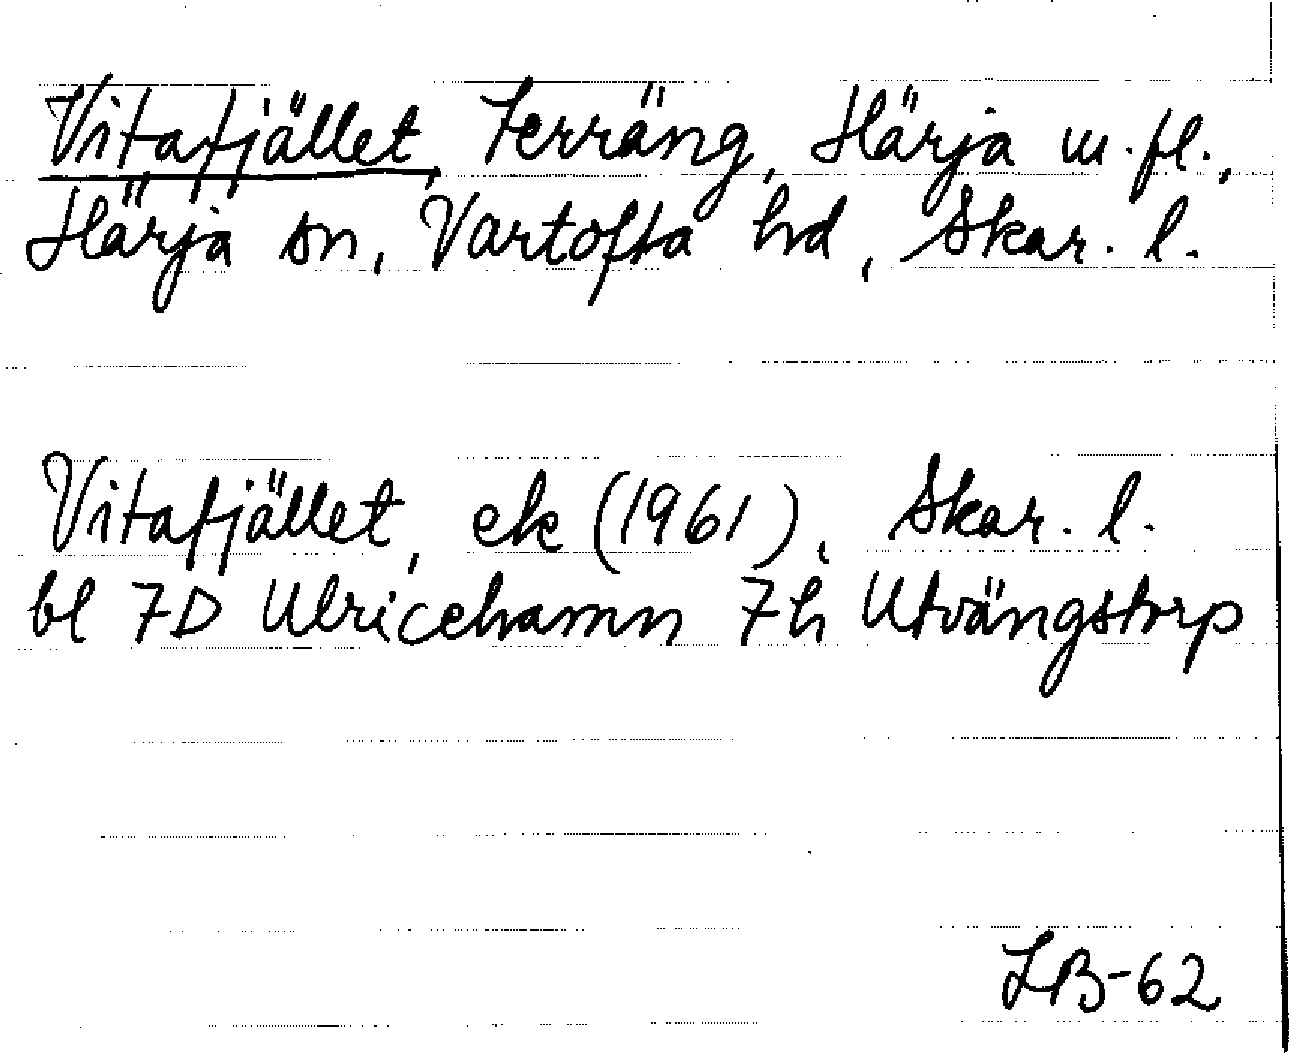 Vitafjället, Terräng, Härja m.fl.,
Härja sn, Vartofta hd, Skar. l.
Vitafjället, ek (1961), Skar. l.
bl 7D Ulricehamn 7h Utvängstorp
LB-62